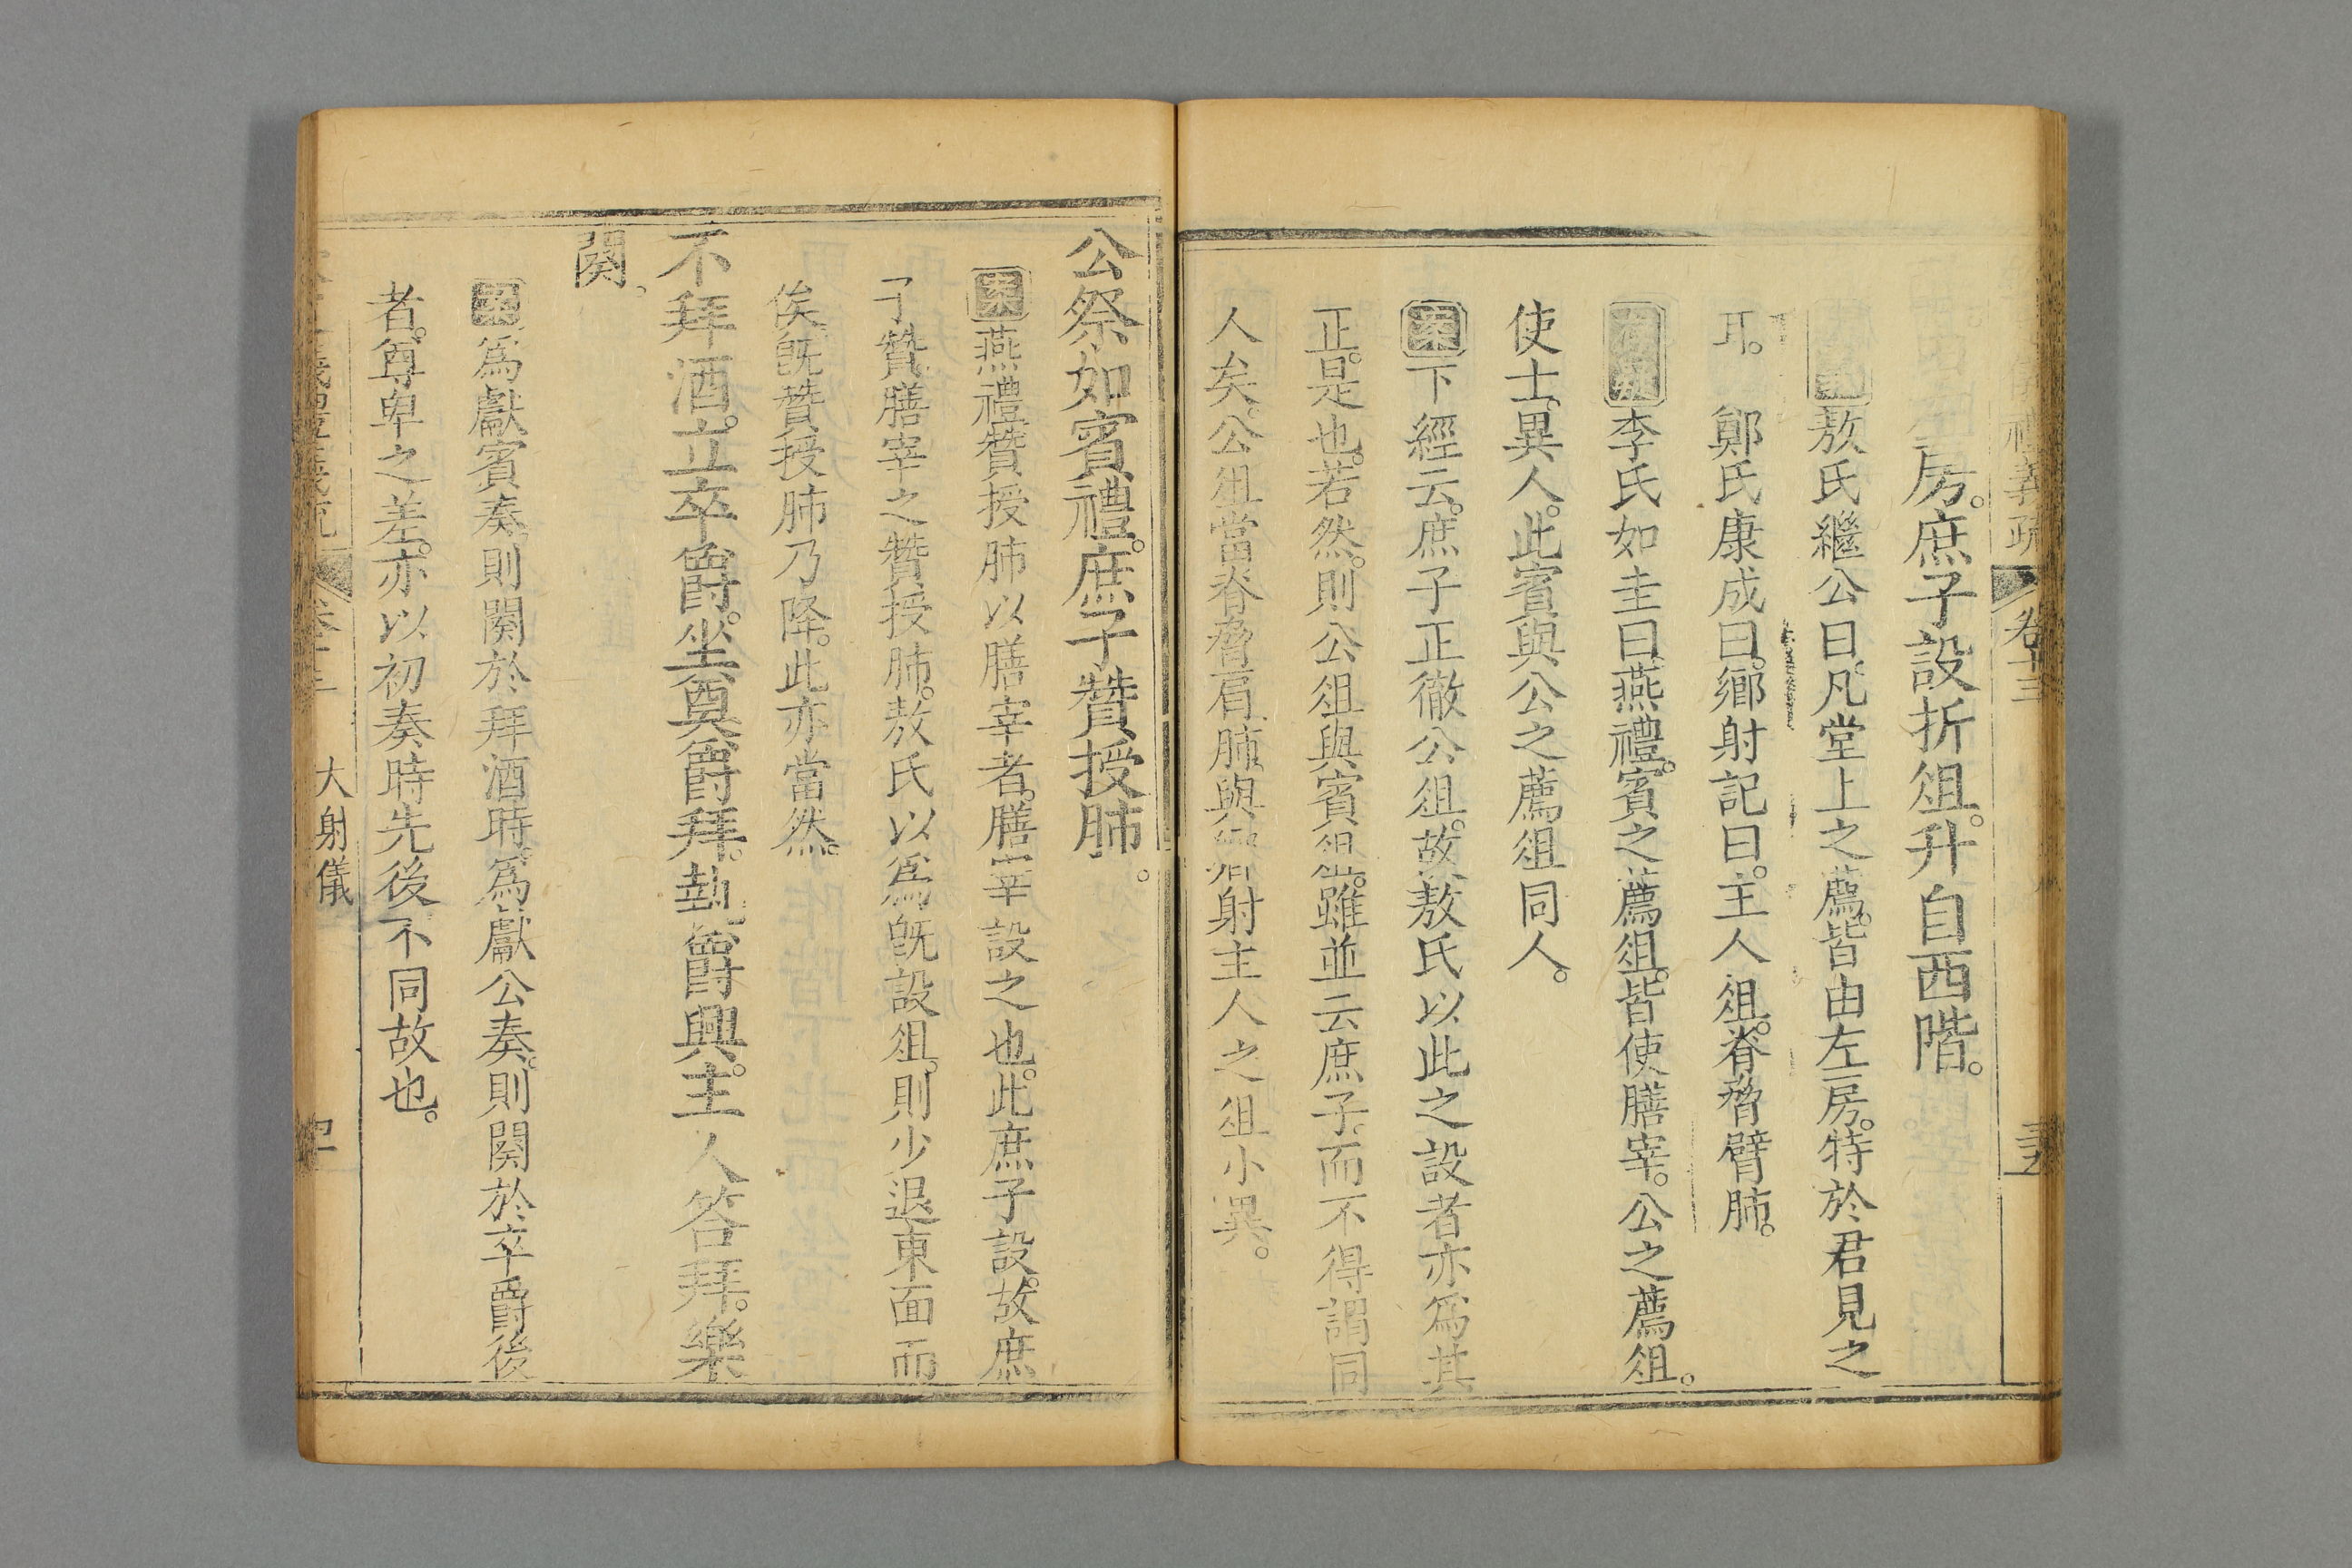 禮義疏 卷十三
房。庶子設折俎。升自西階。
敖氏繼公曰。凡堂上之薦。皆由左房。特於君見之
耳。 鄭氏康成曰。鄉射記曰。主人俎。脊脅臂肺。
李氏如圭曰。燕禮。賓之薦俎。皆使膳宰。公之薦俎。
使士。異人。此賓與公之薦俎同人。
案下經云。庶子正徹公俎。故敖氏以此之設者亦為其
正。是也。若然。則公俎與賓俎。雖並云庶子。而不得謂同
人矣。公俎當脊脅肩肺。與鄉射主人之俎小異。
公祭如賓禮。庶子贊授肺。
案燕禮贊授肺以膳宰者。膳宰設之也。此庶子設。故庶
子贊。膳宰之贊授肺。敖氏以為既設俎。則少退東面而
俟。既贊授肺乃降。此亦當然。
不拜酒。立卒爵。坐奠爵拜。執爵興。主人答拜。樂
闋。
案為獻賓奏。則闋於拜酒時。為獻公奏。則闋於卒爵後
者。尊卑之差。亦以初奏時先後不同故也。
大射儀